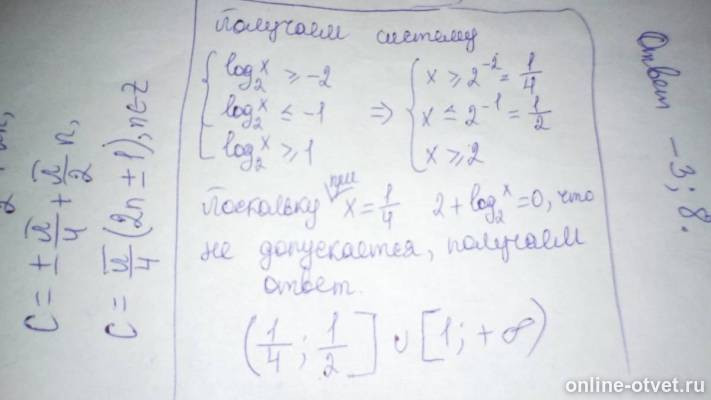 Получаем систему
{ log₂ˣ ≥ -2 ⇒ { x ≥ 2⁻² = 1/4
log₂ˣ ≤ -1 x ≤ 2⁻¹ = 1/2
log₂ˣ ≥ 1 x ≥ 2
Поскольку при x = 1/4 2 + log₂ˣ = 0, что
не допускается, получаем
ответ.
(1/4; 1/2] ∪ [1; +∞)
C = ± π/4 + π/2 n,
C = π/4 (2n ± 1), n ∈ Z
Ответ -3; 8.
online-otvet.ru